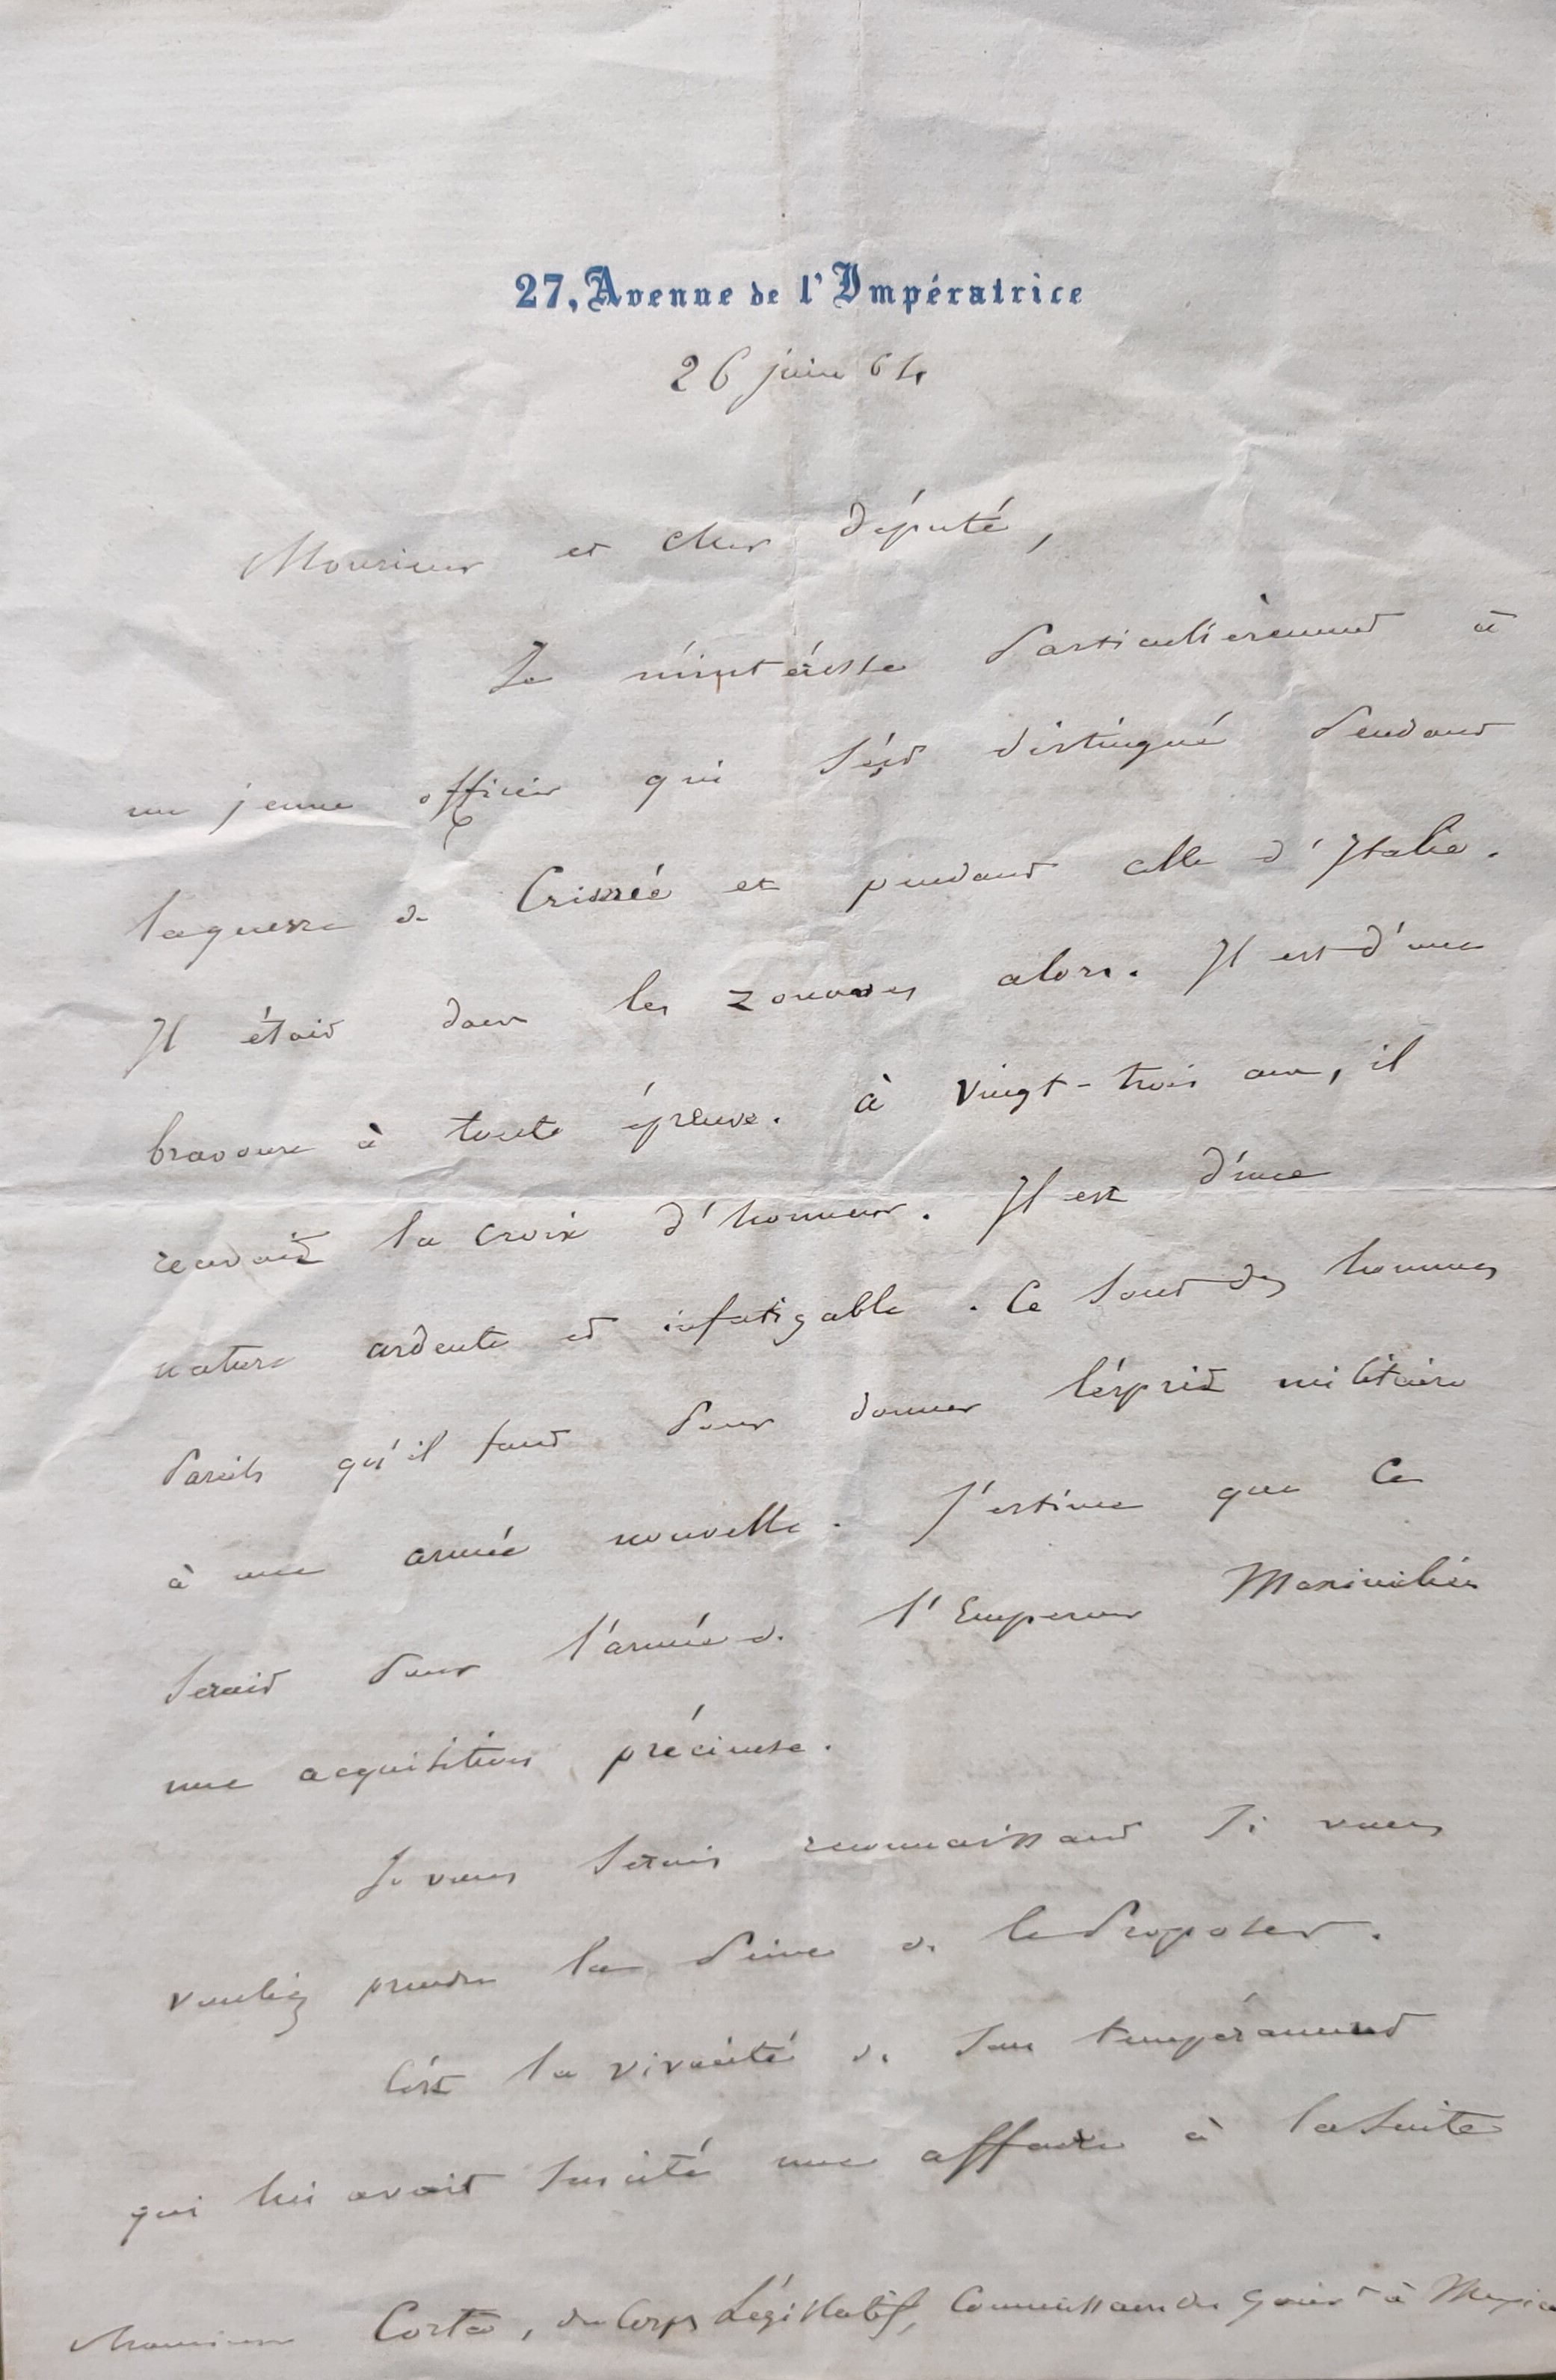 27, Avenue de l'Impératrice
26 juin 64
Monsieur et cher député,
Je m'intéresse particulièrement à
un jeune officier qui s'est distingué pendant
la guerre de Crimée et pendant celle d'Italie.
Il était dans les zouaves alors. Il est d'une
bravoure à toute épreuve. à vingt-trois ans, il
la croix d'honneur. Il est d'une
nature ardente et infatigable. Ce sont des hommes
pareils qu'il faut pour donner l'esprit militaire
à une armée nouvelle. J'estime que ce
serait pour l'armée de l'Empereur Maximilien
une acquisition précieuse.
Je vous serais reconnaissant si vous
vouliez prendre la peine de le proposer.
C'est la vivacité de son tempérament
qui lui avait suscité une affaire à la suite
Monsieur Corta, du Corps Législatif, Commissaire du Gouvt à Mexico